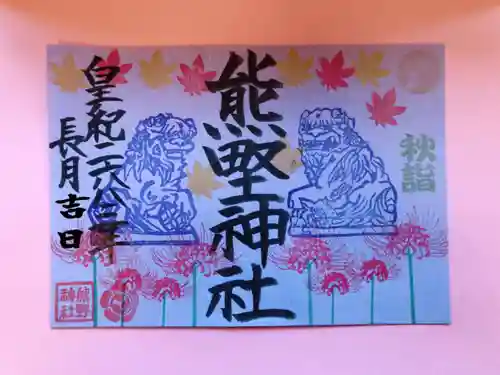 秋詣
熊野神社
皇紀二六八三年
長月吉日
熊野
神社